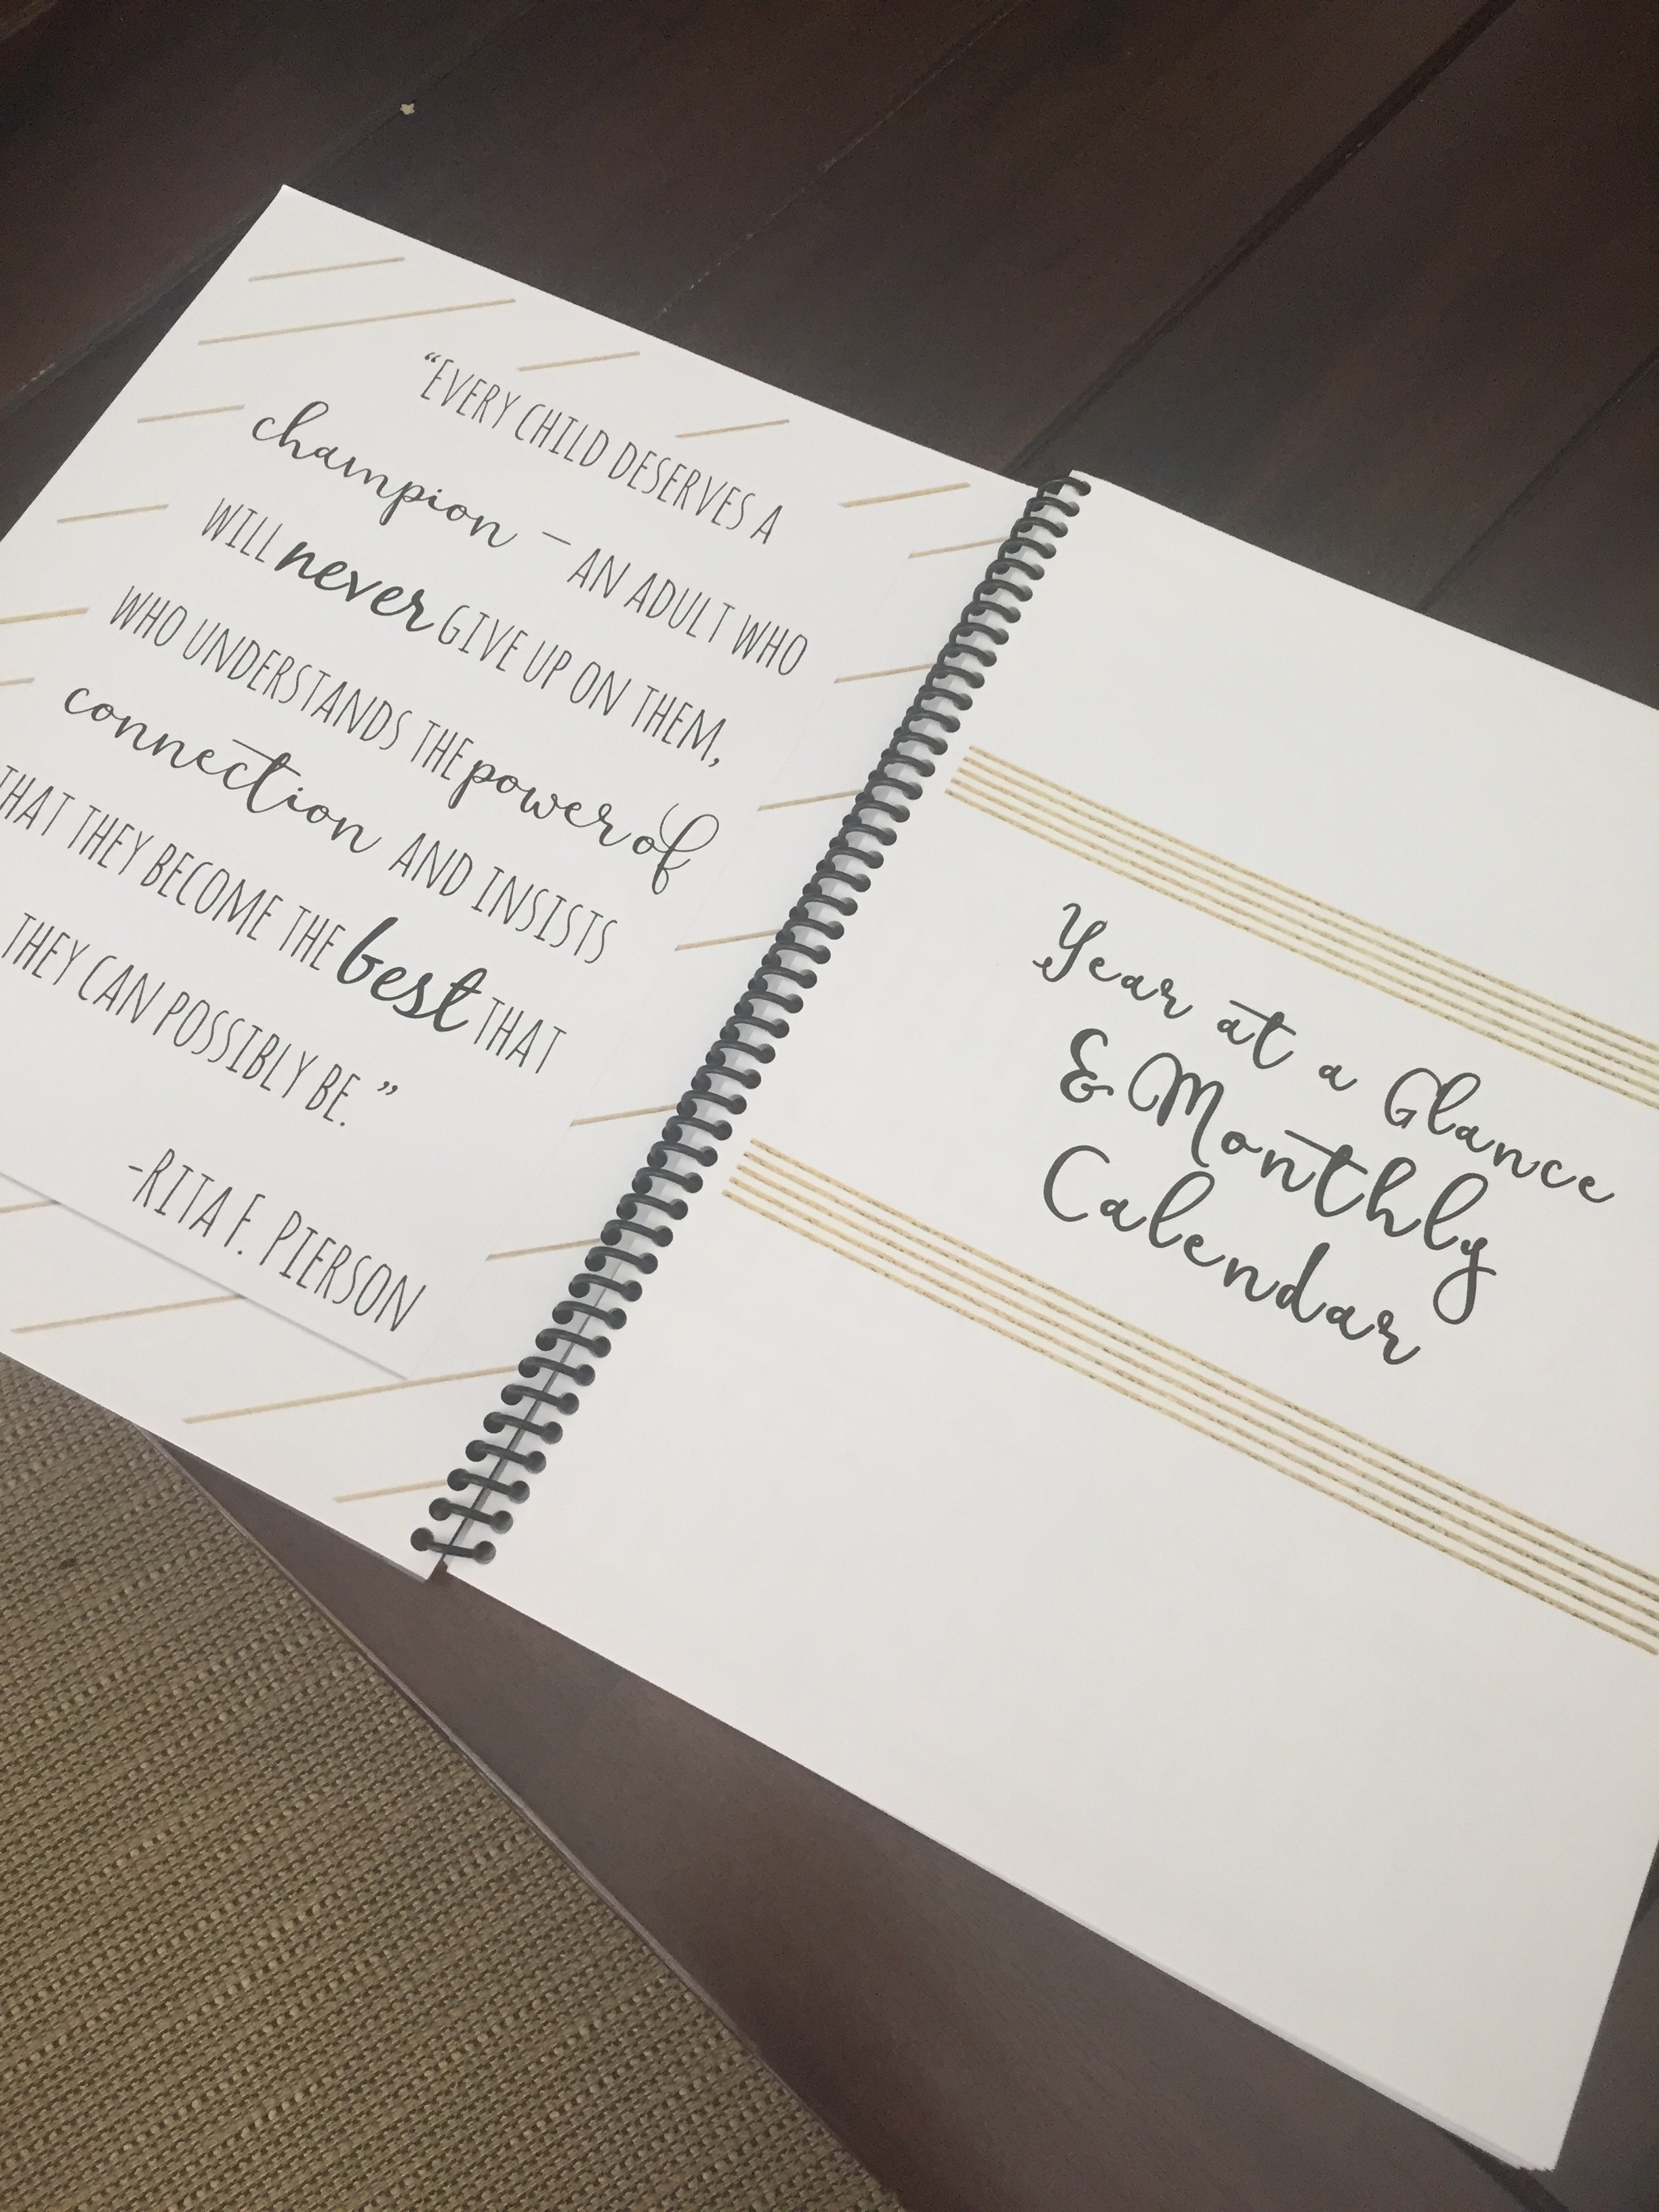 “EVERY CHILD DESERVES A
champion – AN ADULT WHO
WILL never GIVE UP ON THEM,
WHO UNDERSTANDS THE power of
connection AND INSISTS
THAT THEY BECOME THE best THAT
THEY CAN POSSIBLY BE.”
-RITA F. PIERSON
Year at a Glance
& Monthly
Calendar